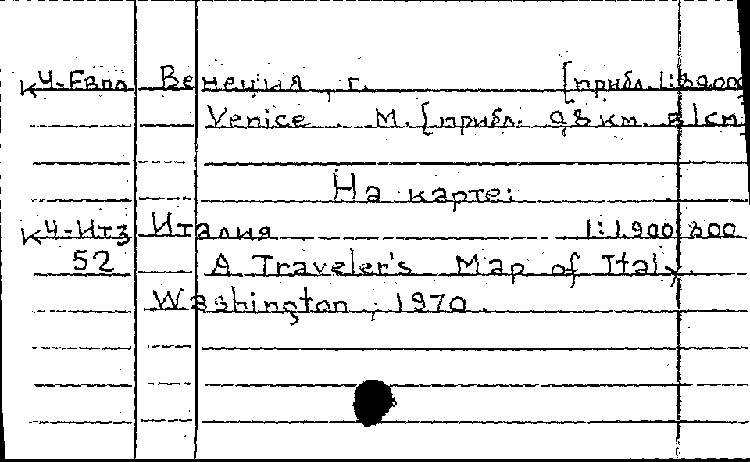 К4-Евпл Венеция, г. [прибл. 1:
Venice. М. [прибл. 0,8 км. в 1см
На карте:
К4-Ит3 Италия 1:1.900 800
52 A Traveler's Map of Italy.
Washington, 1970.